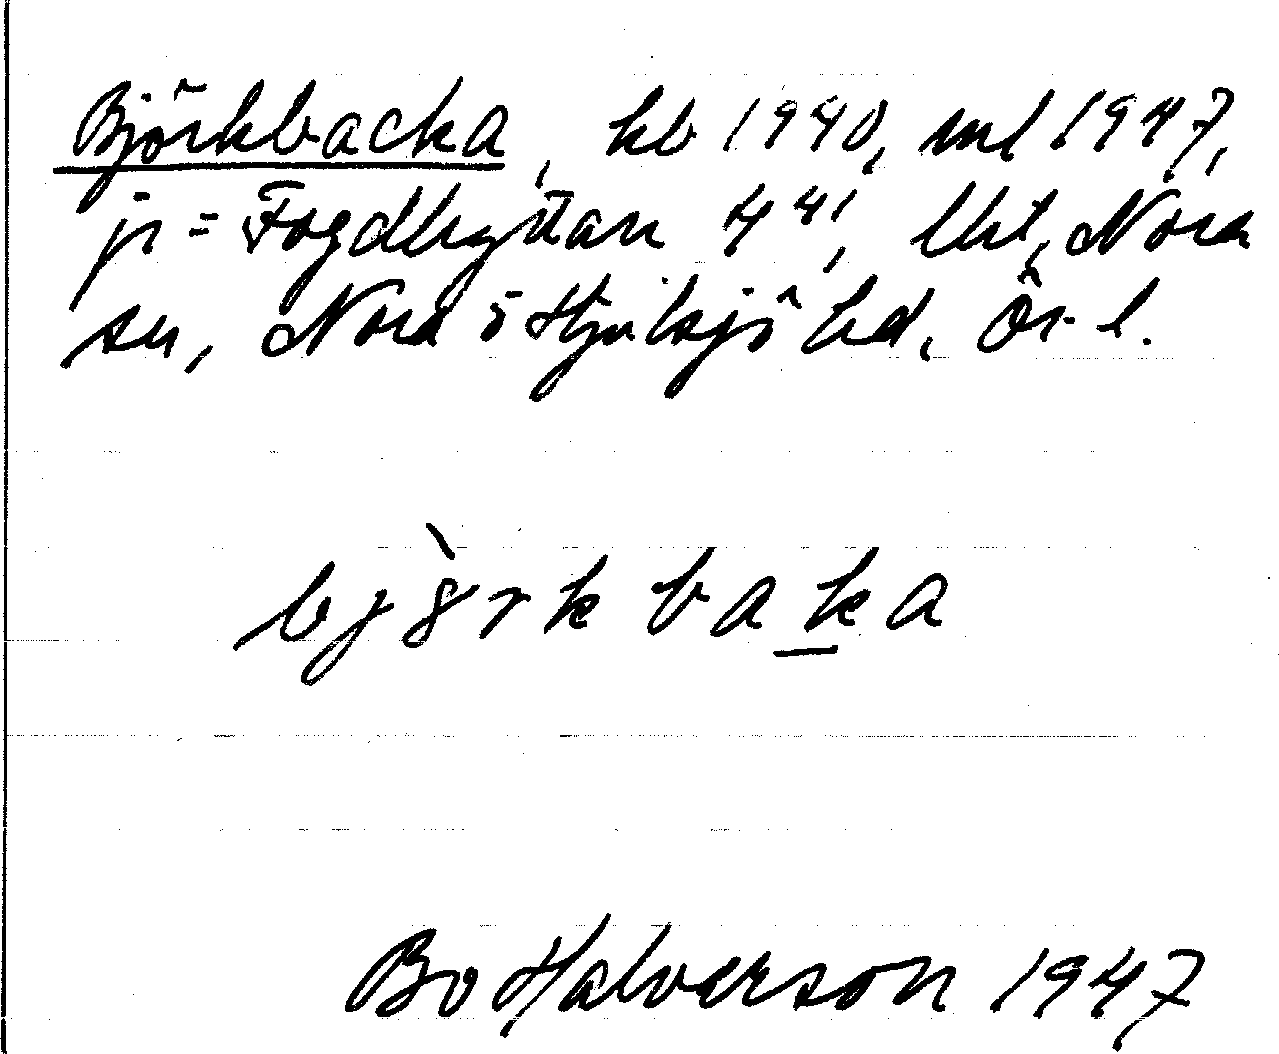 Björkbacka, kb 1940, ml 1947,
jr = Fogdhyttan 4⁴¹, lht, Nora
sn, Nora o Hjulsjö bd, Ör. l.
bjö̀rkbaka
Bo Halverson 1947